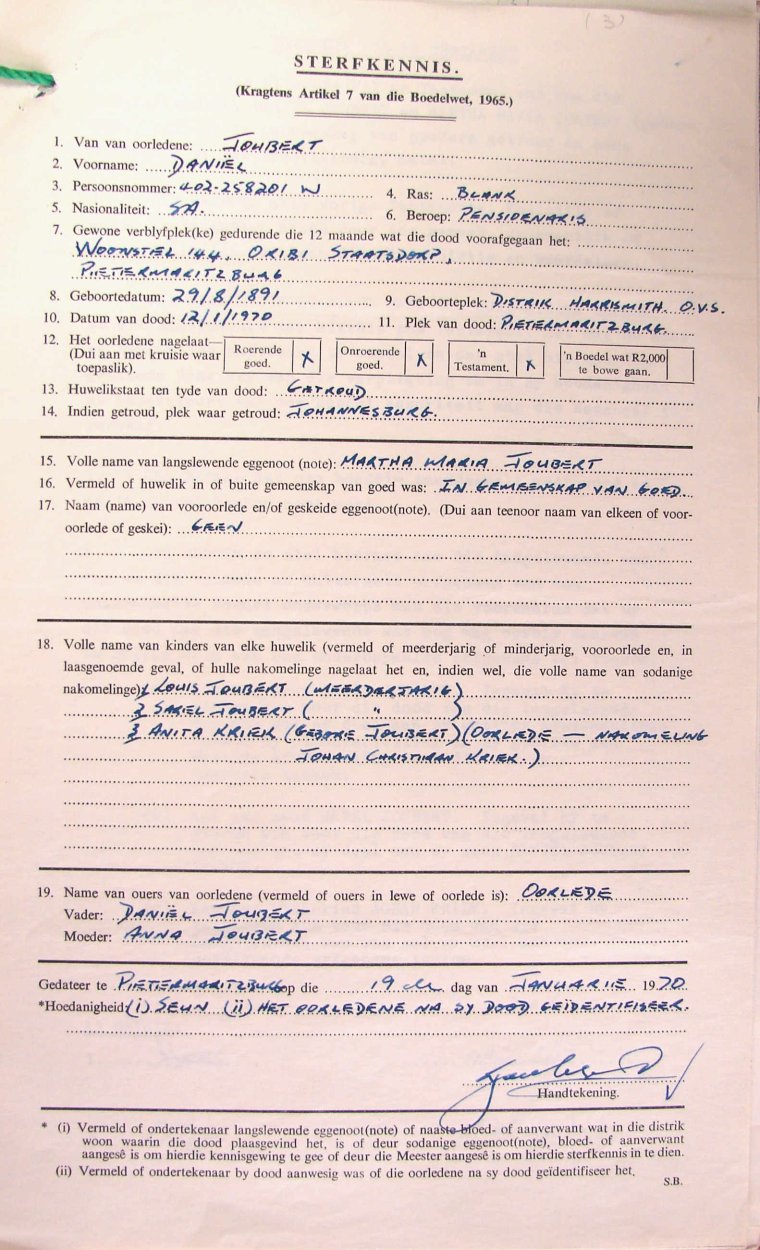 (3)
STERFKENNIS.
(Kragtens Artikel 7 van die Boedelwet, 1965.)
1. Van van oorledene: JOUBERT
2. Voorname: DANIËL
3. Persoonsnommer: 402-258201 W 4. Ras: BLANK
5. Nasionaliteit: SA. 6. Beroep: PENSIOENARIS
7. Gewone verblyfplek(ke) gedurende die 12 maande wat die dood voorafgegaan het:
WOONSTEL 144, ORIBI STAATSDORP,
PIETERMARITZBURG
8. Geboortedatum: 29/8/1891 9. Geboorteplek: DISTRIK HARRISMITH. O.V.S.
10. Datum van dood: 12/1/1970 11. Plek van dood: PIETERMARITZBURG.
12. Het oorledene nagelaat—
(Dui aan met kruisie waar
toepaslik).
Roerende goed. X Onroerende goed. X 'n Testament. X 'n Boedel wat R2,000 te bowe gaan.
13. Huwelikstaat ten tyde van dood: GETROUD
14. Indien getroud, plek waar getroud: JOHANNESBURG.
15. Volle name van langslewende eggenoot (note): MARTHA MARIA JOUBERT
16. Vermeld of huwelik in of buite gemeenskap van goed was: IN GEMEENSKAP VAN GOED.
17. Naam (name) van vooroorlede en/of geskeide eggenoot(note). (Dui aan teenoor naam van elkeen of voor-
oorlede of geskei): GEEN
18. Volle name van kinders van elke huwelik (vermeld of meerderjarig of minderjarig, vooroorlede en, in
laasgenoemde geval, of hulle nakomelinge nagelaat het en, indien wel, die volle name van sodanige
nakomelinge) 1 LOUIS JOUBERT (MEERDERJARIG)
2 SAREL JOUBERT ( " )
3 ANITA KRIEK (GEBORE JOUBERT) (OORLEDE — NAKOMELING
JOHAN CHRISTIAAN KRIEK.)
19. Name van ouers van oorledene (vermeld of ouers in lewe of oorlede is): OORLEDE
Vader: DANIËL JOUBERT
Moeder: ANNA JOUBERT
Gedateer te PIETERMARITZBURG op die 19 de dag van JANUARIE 1970.
*Hoedanigheid (i) SEUN (ii) HET OORLEDENE NA SY DOOD GEÏDENTIFISEER.
Handtekening.
* (i) Vermeld of ondertekenaar langslewende eggenoot(note) of naaste bloed- of aanverwant wat in die distrik
woon waarin die dood plaasgevind het, is of deur sodanige eggenoot(note), bloed- of aanverwant
aangesê is om hierdie kennisgewing te gee of deur die Meester aangesê is om hierdie sterfkennis in te dien.
(ii) Vermeld of ondertekenaar by dood aanwesig was of die oorledene na sy dood geïdentifiseer het.
S.B.